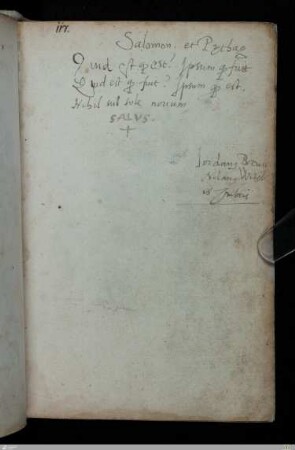 Salomon et Pythag
Quid est quod est? Ipsum quod fuit
Quid est quod fuit? Ipsum quod est.
Nihil sub sole novum
SALVS.
Iordang Brun
Nolang